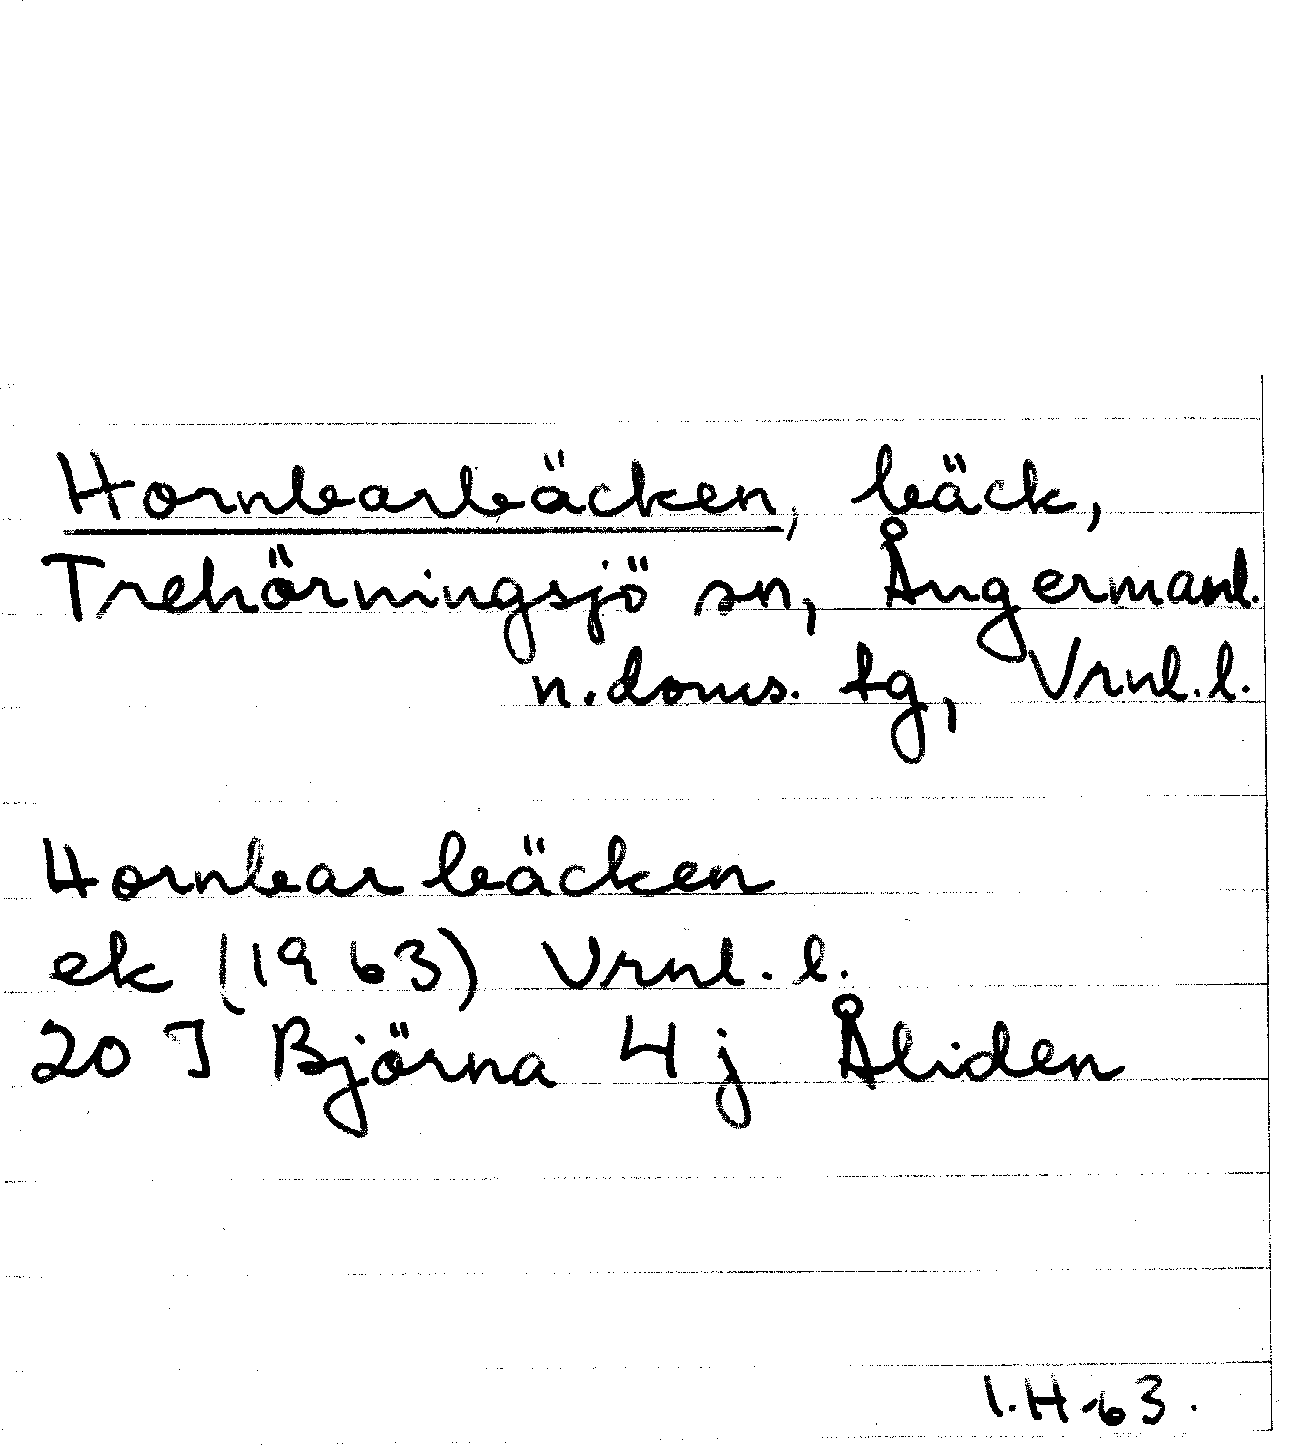 Hornbarbäcken, bäck,
Trehörningsjö sn, Ångermanl.
n.doms. tg, Vrnl.l.
Hornbarbäcken
ek (1963) Vrnl.l.
20 J Björna 4 j Åliden
I.H-63.